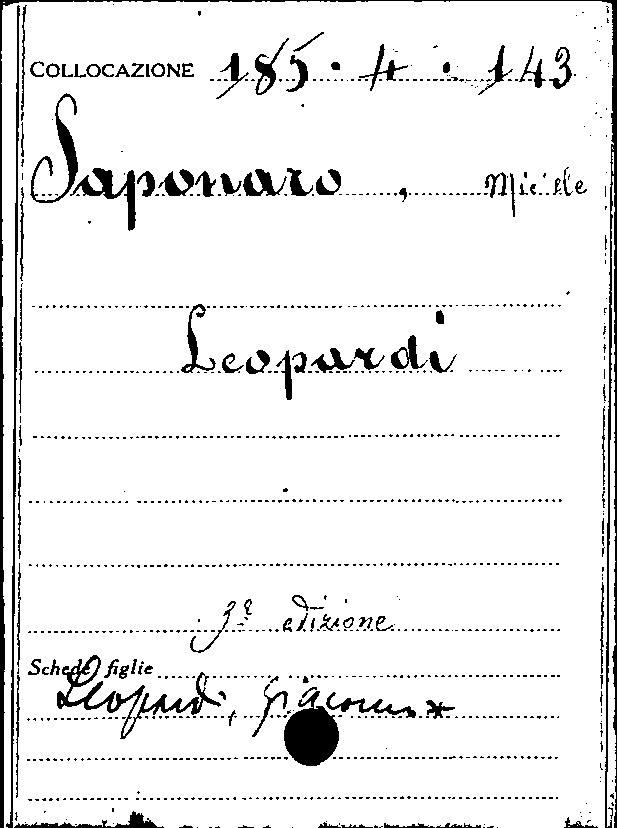 COLLOCAZIONE 185.4.143
Saponaro, Michele
Leopardi
3ª edizione
Schede figlie
Leopardi, Giacomo *